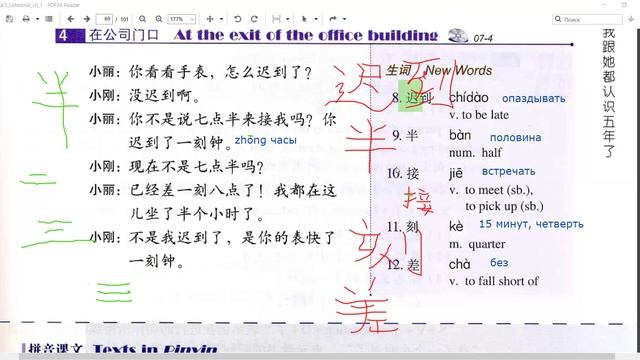 69 / 101
177%
Поиск
4 在公司门口 At the exit of the office building 07-4
小丽：你看看手表，怎么迟到了？
小刚：没迟到啊。
小丽：你不是说七点半来接我吗？你
迟到了一刻钟。zhōng часы
小刚：现在不是七点半吗？
小丽：已经差一刻八点了！我都在这
儿坐了半个小时了。
小刚：不是我迟到了，是你的表快了
一刻钟。
半
二
三
迟到
半
接
刻
差
生词 New Words
8. 迟到 chídào опаздывать
v. to be late
9. 半 bàn половина
num. half
10. 接 jiē встречать
v. to meet (sb.),
to pick up (sb.)
11. 刻 kè 15 минут, четверть
m. quarter
12. 差 chà без
v. to fall short of
我跟她都认识五年了
拼音课文 Texts in Pinyin